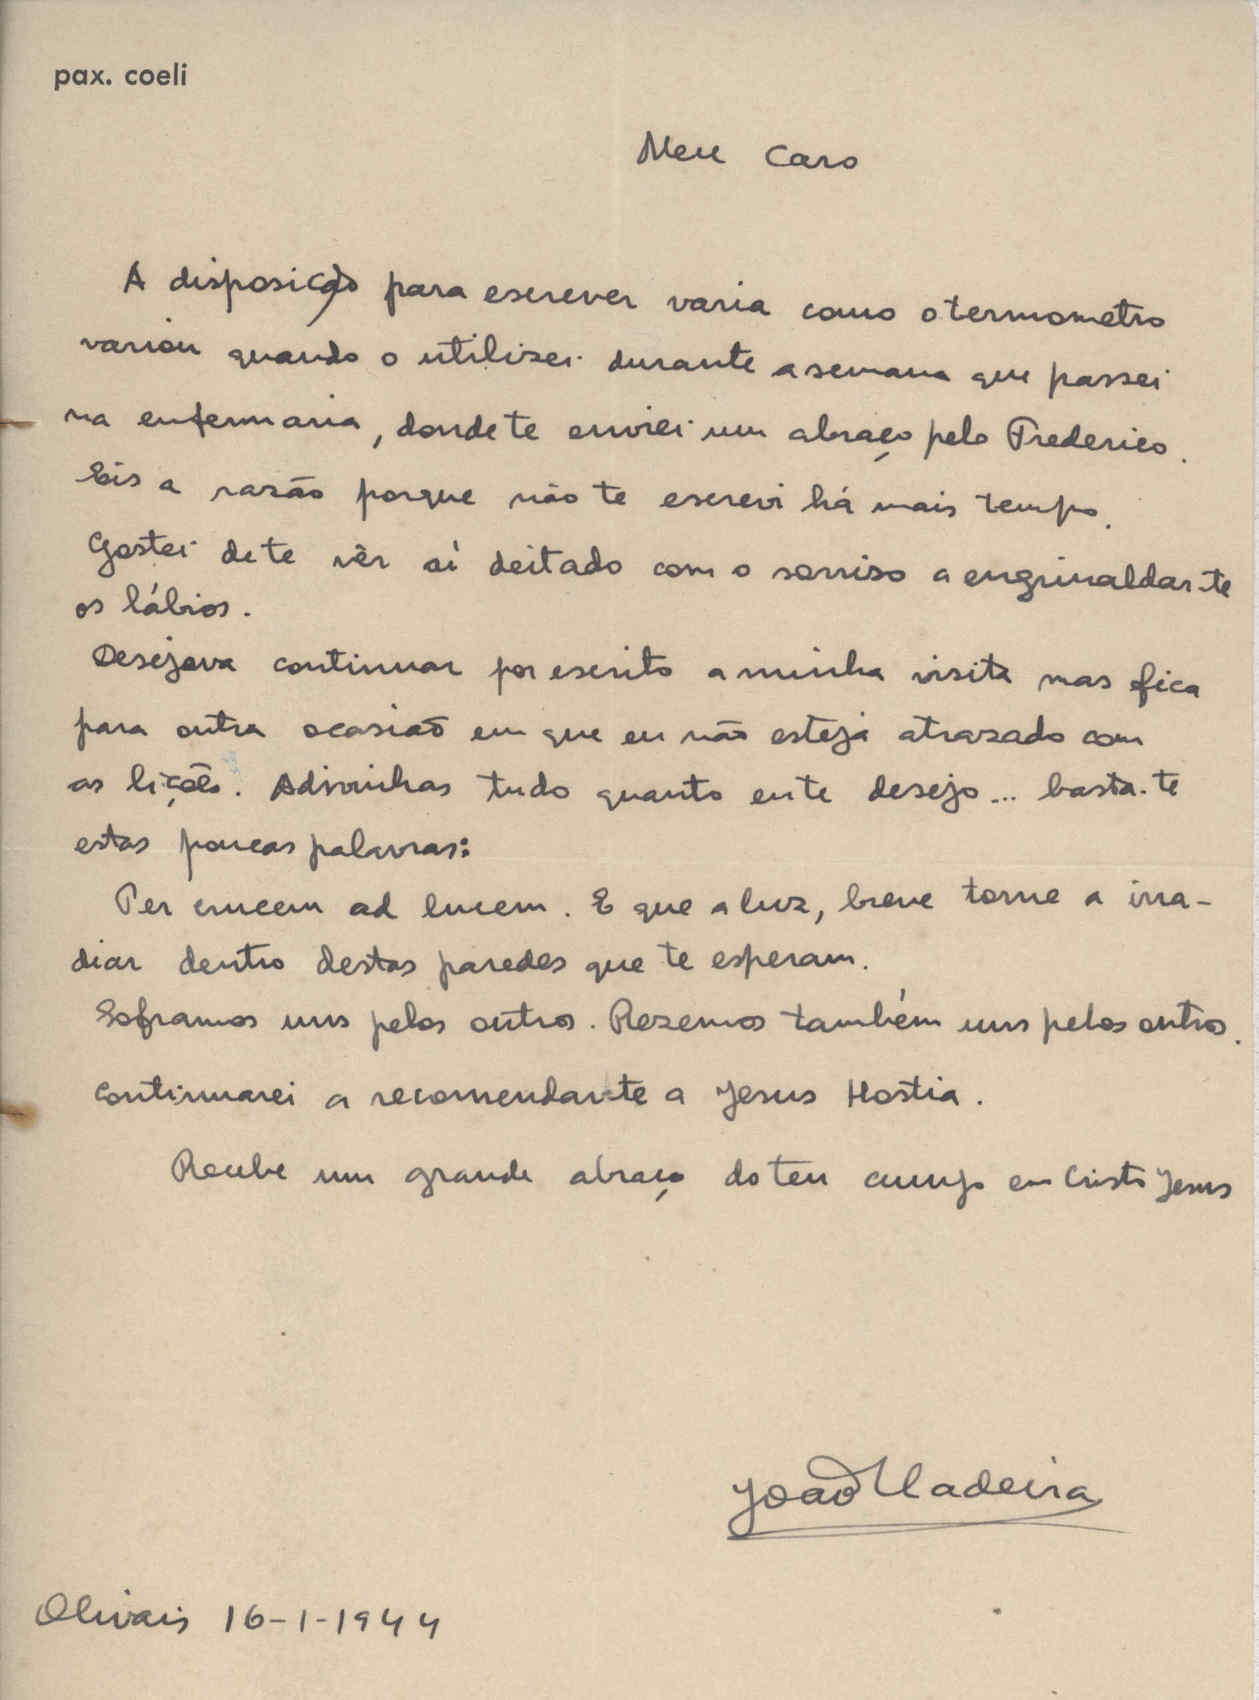 pax. coeli
Meu Caro
A disposição para escrever varia como o termometro
variou quando o utilizei durante a semana que passei
na enfermaria, donde te enviei um abraço pelo Frederico.
Eis a razão porque não te escrevi há mais tempo.
Gostei de te vêr aí deitado com o sorriso a engrinaldar-te
os lábios.
Desejava continuar por escrito a minha visita mas fica
para outra ocasião em que eu não esteja atrazado com
as lições. Adivinhas tudo quanto eu te desejo... basta-te
estas poucas palavras:
Per crucem ad lucem. E que a luz, breve torne a irra-
diar dentro destas paredes que te esperam.
Soframos uns pelos outros. Rezemos também uns pelos outros.
Continuarei a recomendar-te a Jesus Hostia.
Recebe um grande abraço do teu em Cristo Jesus
João Madeira
Olivais 16-1-1944